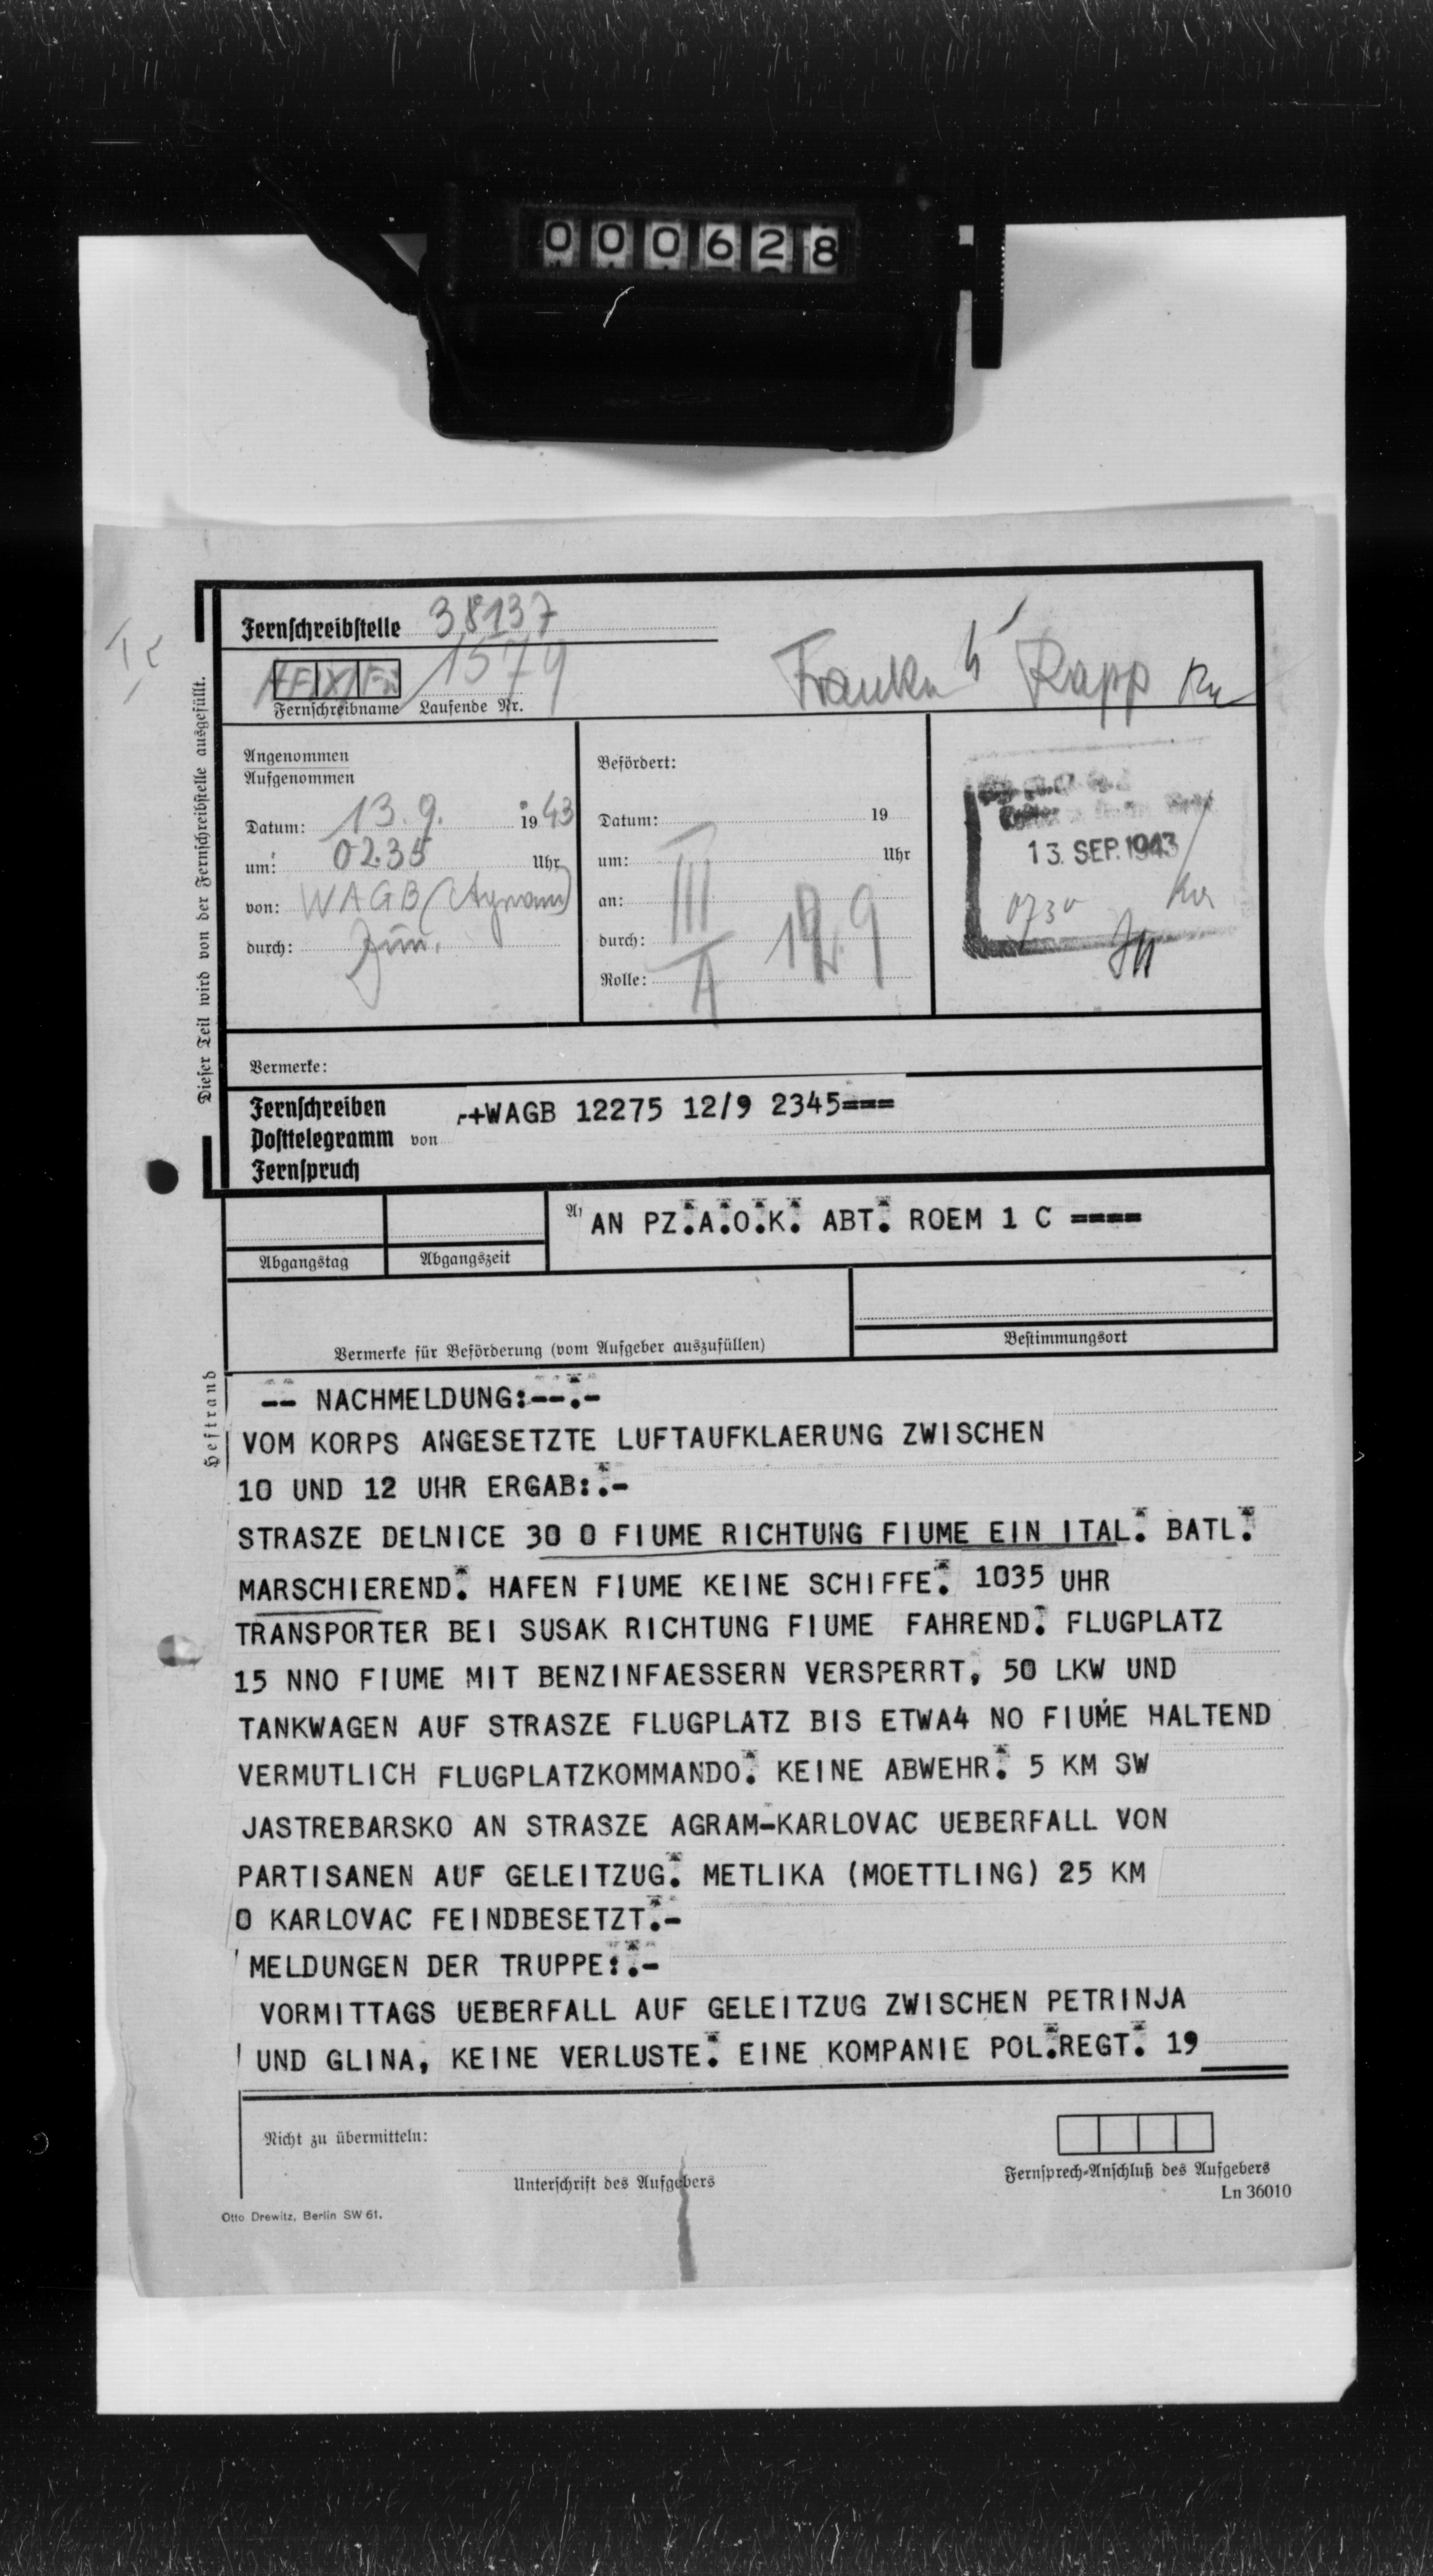 000628
Fernschreibstelle 38137
1579
Fernschreibname Laufende Nr.
Rapp
Dieser Teil wird von der Fernschreibstelle ausgefüllt.
Angenommen
Aufgenommen
Datum: 13.9. 1943
um: 02.35 Uhr
von: WAGB (Agram)
durch:
Befördert:
Datum: 19
um: Uhr
an: III
durch:
Rolle:
13. SEP. 1943
0730
Vermerke:
Fernschreiben
Posttelegramm von
Fernspruch
-+WAGB 12275 12/9 2345===
AN PZ.A.O.K. ABT. ROEM 1 C ====
Abgangstag Abgangszeit
Vermerke für Beförderung (vom Aufgeber auszufüllen)
Bestimmungsort
Heftrand
-- NACHMELDUNG:--.-
VOM KORPS ANGESETZTE LUFTAUFKLAERUNG ZWISCHEN
10 UND 12 UHR ERGAB:.-
STRASZE DELNICE 30 O FIUME RICHTUNG FIUME EIN ITAL. BATL.
MARSCHIEREND. HAFEN FIUME KEINE SCHIFFE. 1035 UHR
TRANSPORTER BEI SUSAK RICHTUNG FIUME FAHREND. FLUGPLATZ
15 NNO FIUME MIT BENZINFAESSERN VERSPERRT, 50 LKW UND
TANKWAGEN AUF STRASZE FLUGPLATZ BIS ETWA4 NO FIUME HALTEND
VERMUTLICH FLUGPLATZKOMMANDO. KEINE ABWEHR. 5 KM SW
JASTREBARSKO AN STRASZE AGRAM-KARLOVAC UEBERFALL VON
PARTISANEN AUF GELEITZUG. METLIKA (MOETTLING) 25 KM
O KARLOVAC FEINDBESETZT.-
MELDUNGEN DER TRUPPE:.-
VORMITTAGS UEBERFALL AUF GELEITZUG ZWISCHEN PETRINJA
UND GLINA, KEINE VERLUSTE. EINE KOMPANIE POL.REGT. 19
Nicht zu übermitteln:
Unterschrift des Aufgebers
Fernsprech-Anschluß des Aufgebers
Ln 36010
Otto Drewitz, Berlin SW 61.